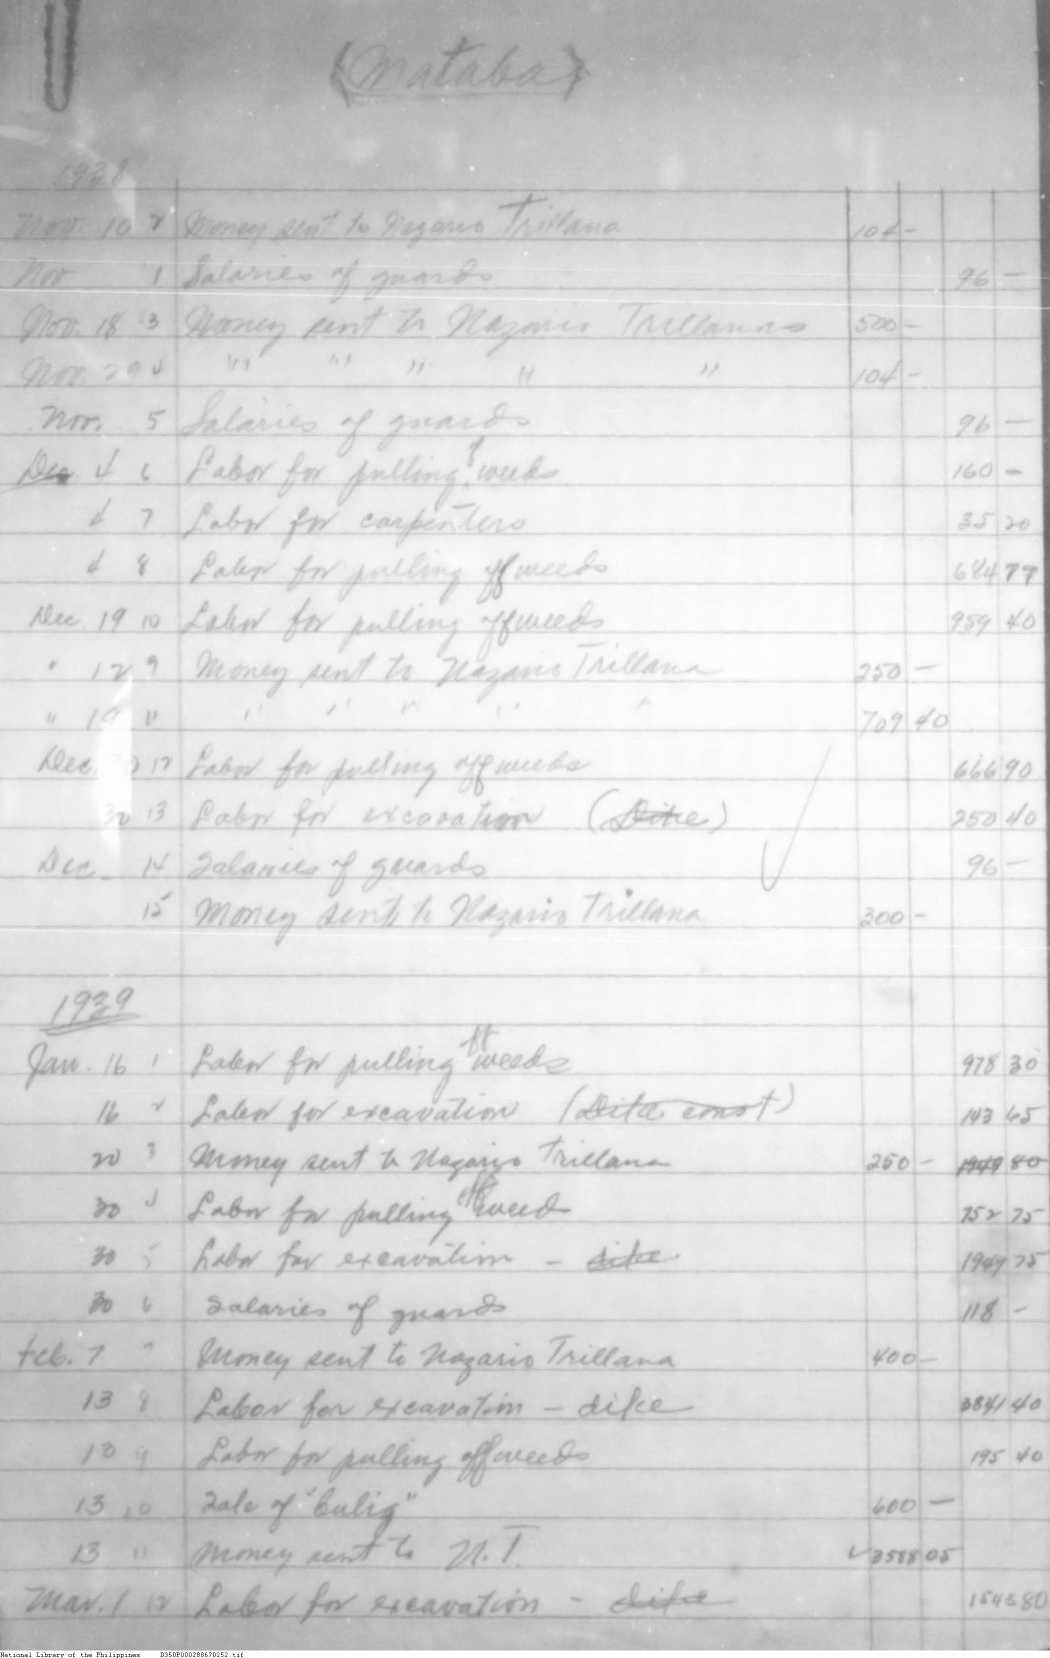 (Mataba)
1938
Nov. 10 2 Money sent to Nazario Trillana 104 -
Nov 1 Salaries of guards 96 -
Nov. 18 3 Money sent to Nazario Trillanas 500 -
Nov. 29 4 " " " " " 104 -
Nov. 5 Salaries of guards 96 -
Dec 4 6 Labor for pulling of weeds 160 -
4 7 Labor for carpenters 35 20
4 8 Labor for pulling off weeds 77
Dec. 19 10 Labor for pulling off weeds 959 40
" 12 9 Money sent to Nazario Trillana 250 -
" 19 11 " " " " " 709 40
Dec 12 Labor for pulling off weeds 666 90
30 13 Labor for excavation (Dike) 250 40
Dec. 14 Salaries of guards 96 -
15 Money sent to Nazario Trillana 300 -
1939
Jan. 16 1 Labor for pulling off weeds 978 30
16 2 Labor for excavation (Dike const) 143 65
20 3 Money sent to Nazario Trillana 250 - 80
30 4 Labor for pulling off weed 752 75
30 5 Labor for excavation - dike 75
30 6 Salaries of guards 118 -
Feb. 7 Money sent to Nazario Trillana 400 -
13 8 Labor for excavation - dike 3841 40
13 9 Labor for pulling off weeds 195 40
13 10 Sale of "bulig" 600 -
13 11 Money sent to N.T. 05
Mar. 1 12 Labor for excavation - dike 80
National Library of the Philippines D350P000288670252.tif